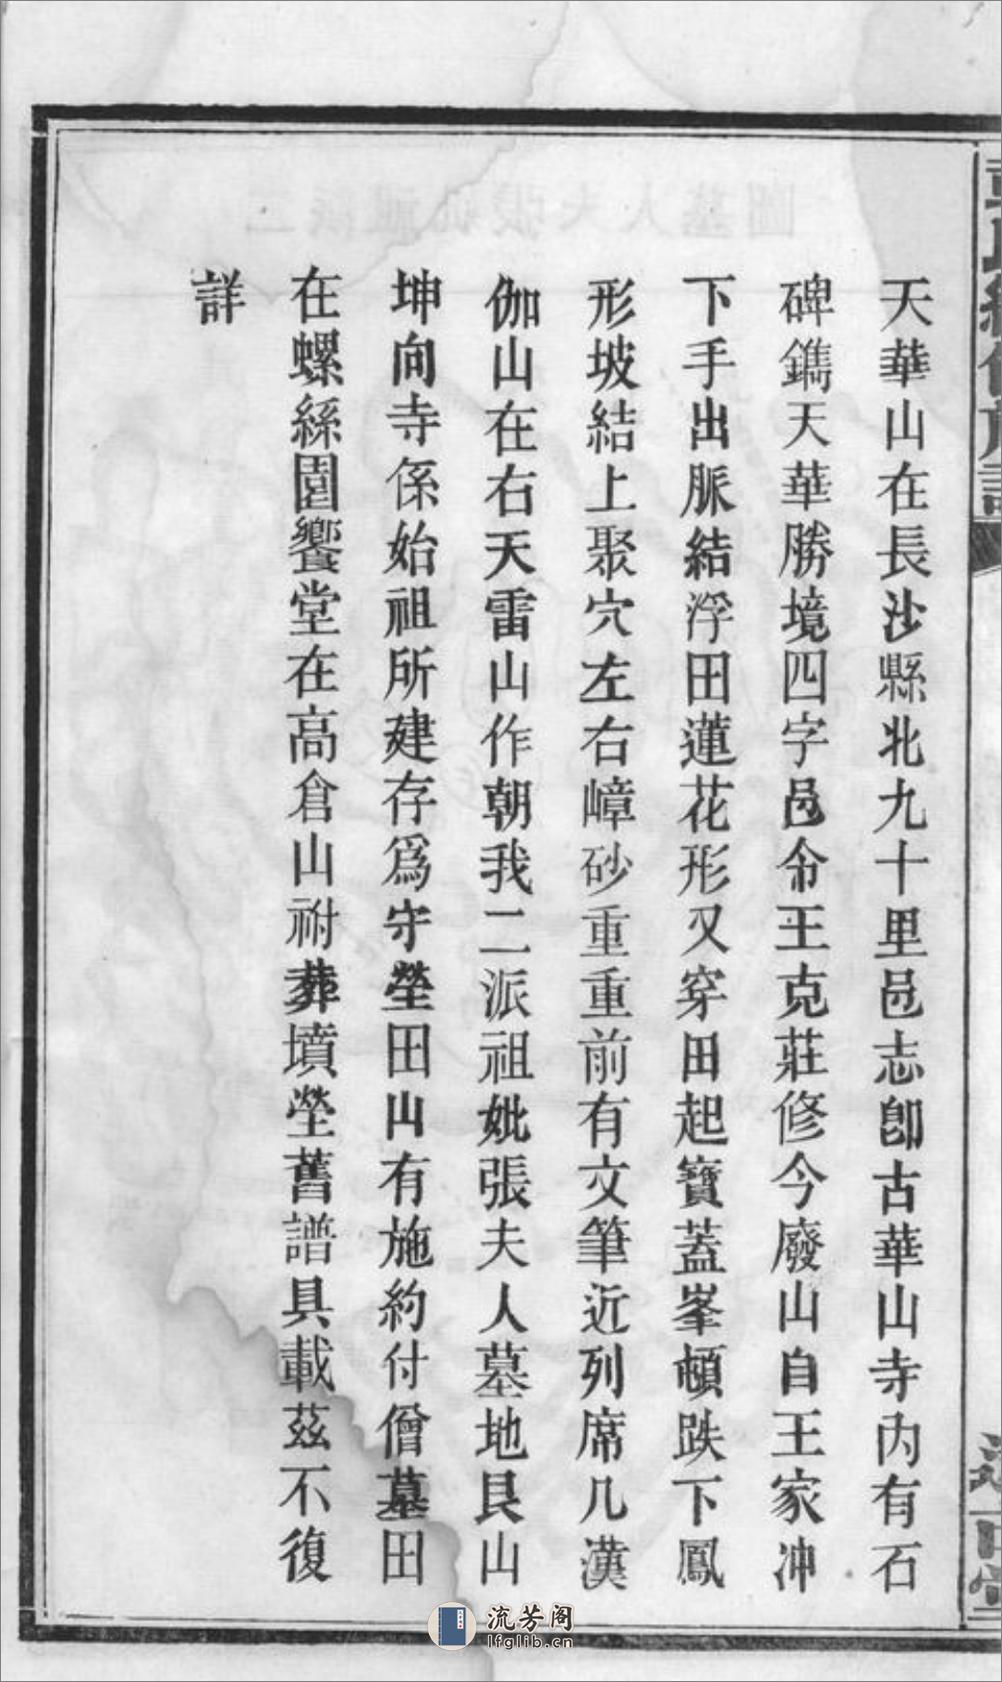 天華山在長沙縣北九十里邑志卽古華山寺內有石
碑鐫天華勝境四字邑令王克莊修今廢山自王家冲
下手出脈結浮田蓮花形又穿田起寶蓋峯頓跌下鳳
形坡結上聚穴左右嶂砂重重前有文筆近列席几漢
伽山在右天雷山作朝我二派祖妣張夫人墓地艮山
坤向寺係始祖所建存爲守塋田山有施約付僧墓田
在螺絲園饗堂在高倉山祔葬墳塋舊譜具載茲不復
詳
流芳阁
lfglib.cn